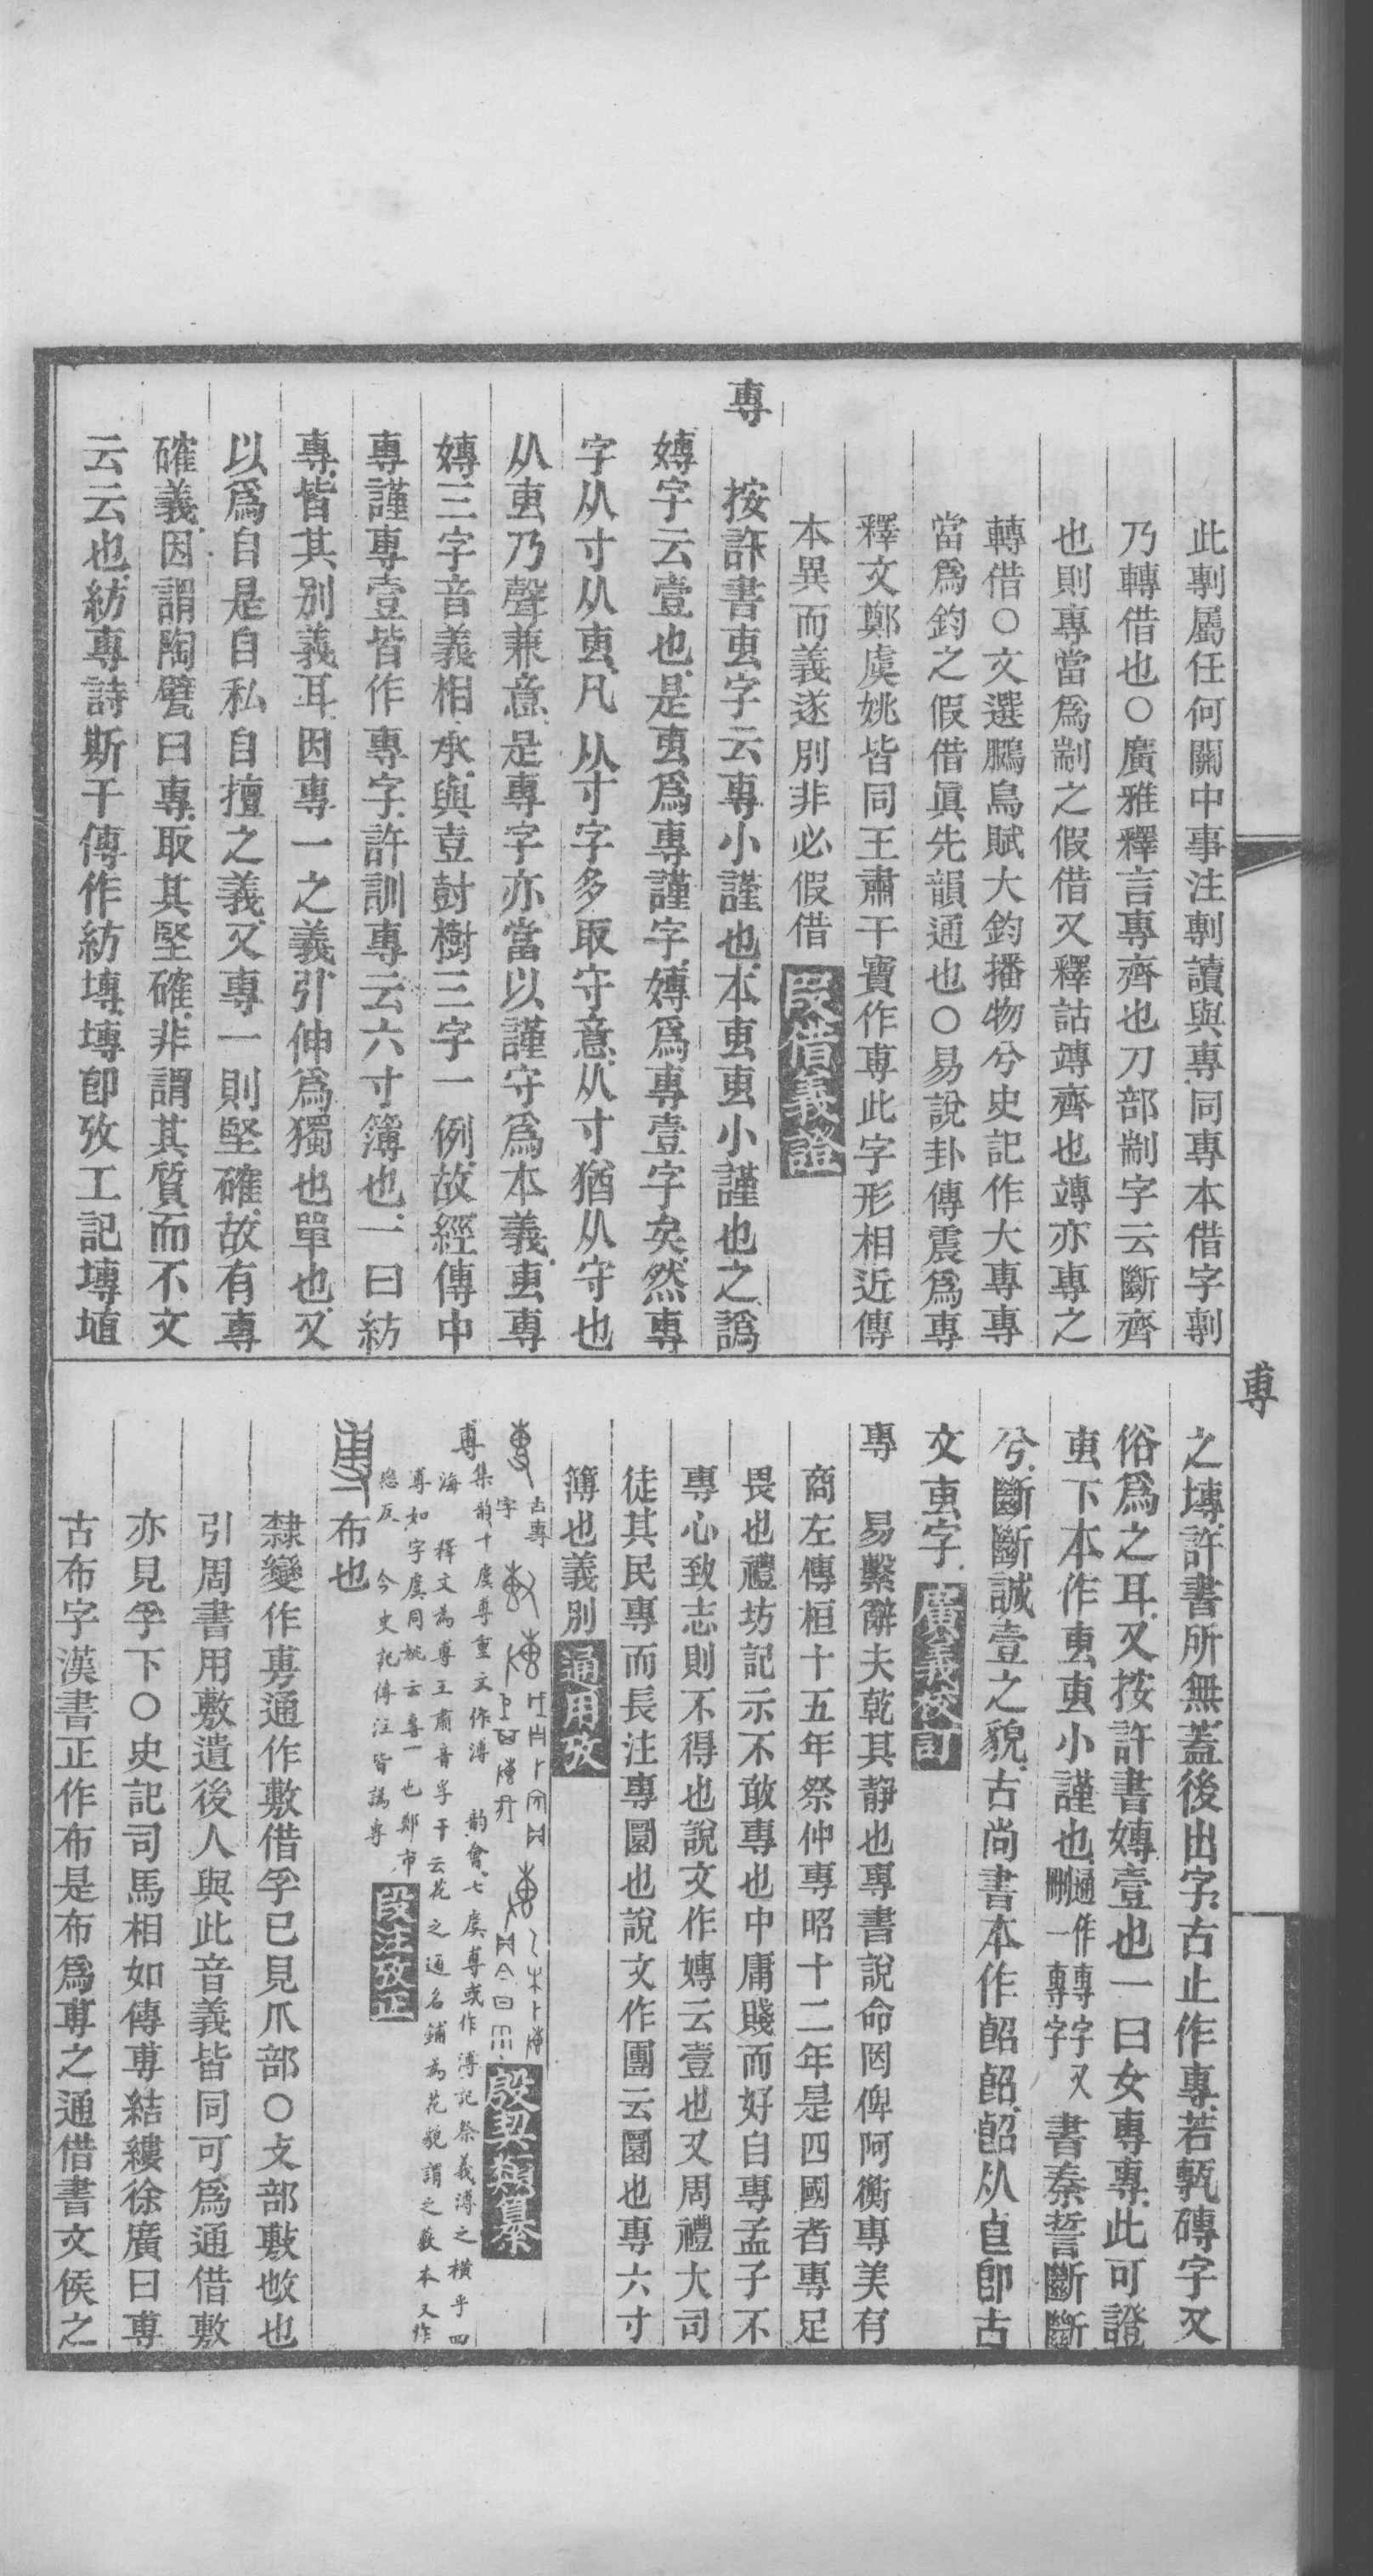 此剸屬任何關中事注剸讀與專同專本借字剸
乃轉借也○廣雅釋言專齊也刀部剬字云斷齊
也則專當爲剬之假借又釋詁竱齊也竱亦專之
轉借○文選鵩鳥賦大鈞播物兮史記作大專專
當爲鈞之假借眞先韻通也○易說卦傳震爲専
釋文鄭虞姚皆同王肅干寶作専此字形相近傳
本異而義遂別非必假借 叚借義證
專 按許書叀字云專小謹也本叀叀小謹也之譌
嫥字云壹也是叀爲專謹字嫥爲專壹字矣然專
字从寸从叀凡从寸字多取守意从寸猶从守也
从叀乃聲兼意是專字亦當以謹守爲本義叀專
嫥三字音義相承與壴尌樹三字一例故經傳中
專謹專壹皆作專字許訓專云六寸簿也一曰紡
專皆其別義耳因專一之義引伸爲獨也單也又
以爲自是自私自擅之義又專一則堅確故有專
確義因謂陶甓曰專取其堅確非謂其質而不文
云云也紡專詩斯干傳作紡塼塼卽攷工記塼埴
尃
之塼許書所無蓋後出字古止作專若甎磚字又
俗爲之耳又按許書嫥壹也一曰女專專此可證
叀下本作叀叀小謹也通作專轉字刪一專字又書秦誓斷斷
兮斷斷誠壹之貌古尚書本作㫁㫁㫁从𠧢卽古
文叀字 廣義校訂
專 易繫辭夫乾其靜也專書說命罔俾阿衡專美有
商左傳桓十五年祭仲專昭十二年是四國者專足
畏也禮坊記示不敢專也中庸賤而好自專孟子不
專心致志則不得也說文作嫥云壹也又周禮大司
徒其民專而長注專圜也說文作團云圜也專六寸
簿也義別 通用攷
古專字 殷契類纂
尃 集韵十虞尃重文作溥 韵會七虞尃或作溥記祭義溥之橫乎四
海 釋文為尃王肅音孚干云花之通名鋪為花貌謂之藪本又作
尃如字虞同姚云專一也鄭市
戀反 今史記傳注皆譌專 段注攷正
布也
隸變作旉通作敷借孚已見爪部○攴部敷㪑也
引周書用敷遺後人與此音義皆同可爲通借敷
亦見孚下○史記司馬相如傳尃結縷徐廣曰尃
古布字漢書正作布是布爲尃之通借書文侯之